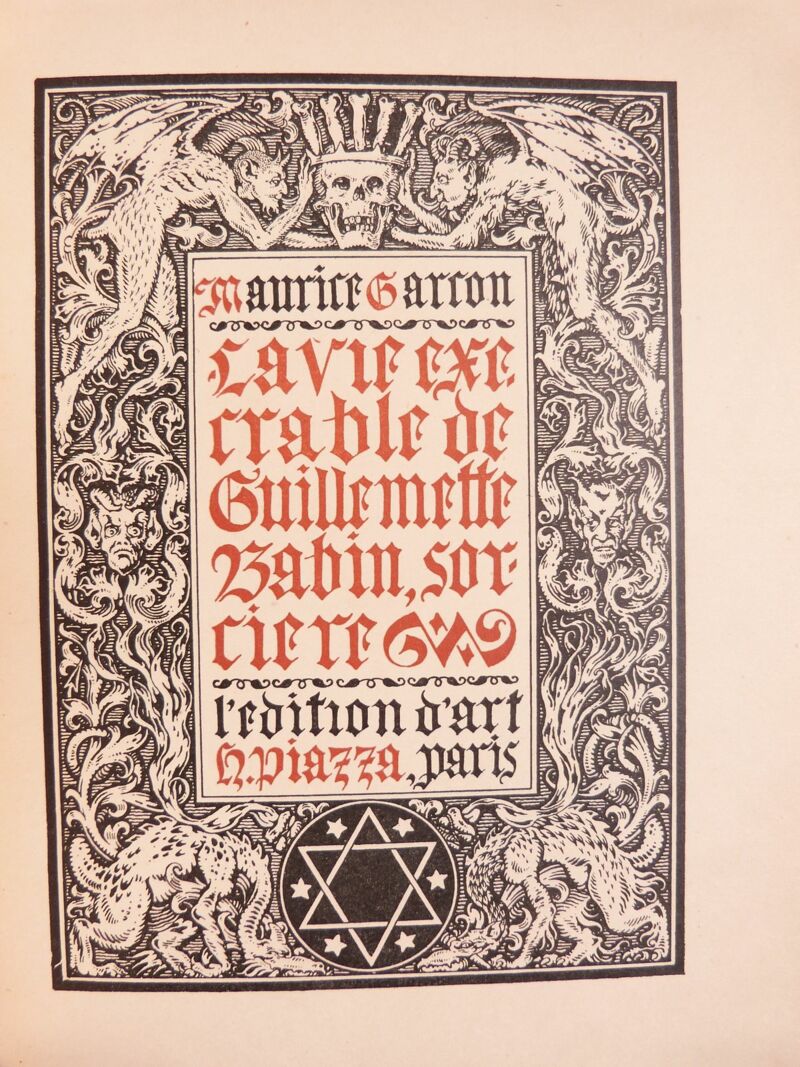 Maurice Garcon
La vie exe-
crable de
Guillemette
Babin, sor-
ciere
l'edition d'art
H. Piazza, paris